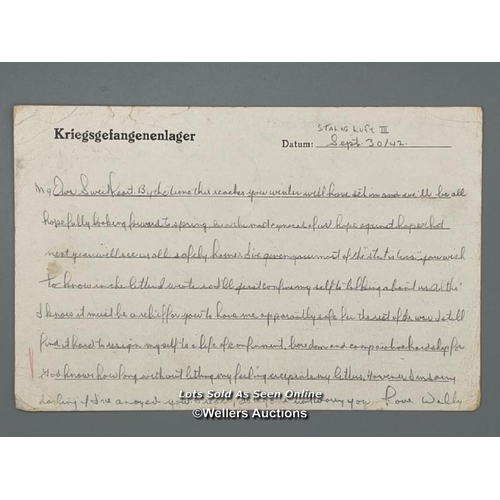 Kriegsgefangenenlager
STALAG LUFT III
Datum: Sept 30/42.
My Own Sweetheart. By the time this reaches you winter will have set in and we'll be all
hopefully looking forward to spring, hope against hope that
next year will see us all safely home. I've given you most of the you wish
to know in the letter I wrote so I'll just confine myself to talking about us.
I know it must be a relief for you to have me apparently safe for the rest of the war. I still
find it hard to resign myself to a life of confinement, boredom and hardship for
God knows how long without letting my feelings creep into my letters. However I'm sorry
darling if I've annoyed you worry you. Love Wally
Lots Sold As Seen Online
©Wellers Auctions